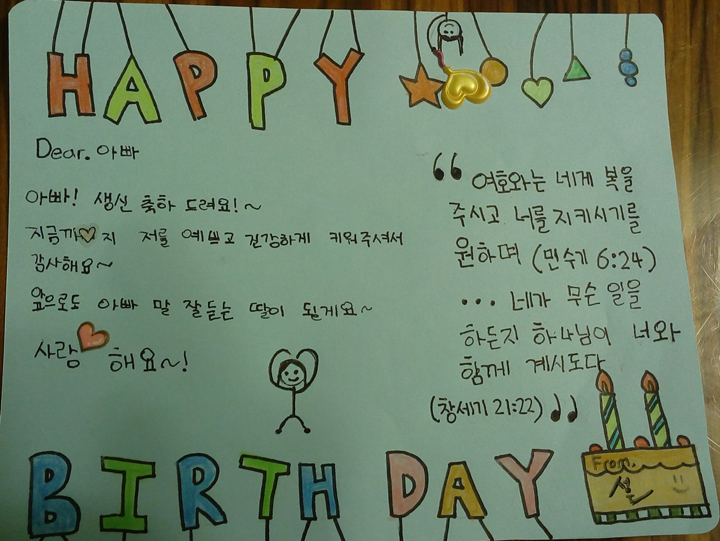 HAPPY
Dear. 아빠
아빠! 생신 축하 드려요!~
지금까♡지 저를 예쁘고 건강하게 키워주셔서
감사해요~
앞으로도 아빠 말 잘듣는 딸이 될게요~
사랑♡해요~!
“ 여호와는 네게 복을
주시고 너를 지키시기를
원하며 (민수기 6:24)
... 네가 무슨 일을
하든지 하나님이 너와
함께 계시도다
(창세기 21:22) ”
BIRTH DAY
From.
설